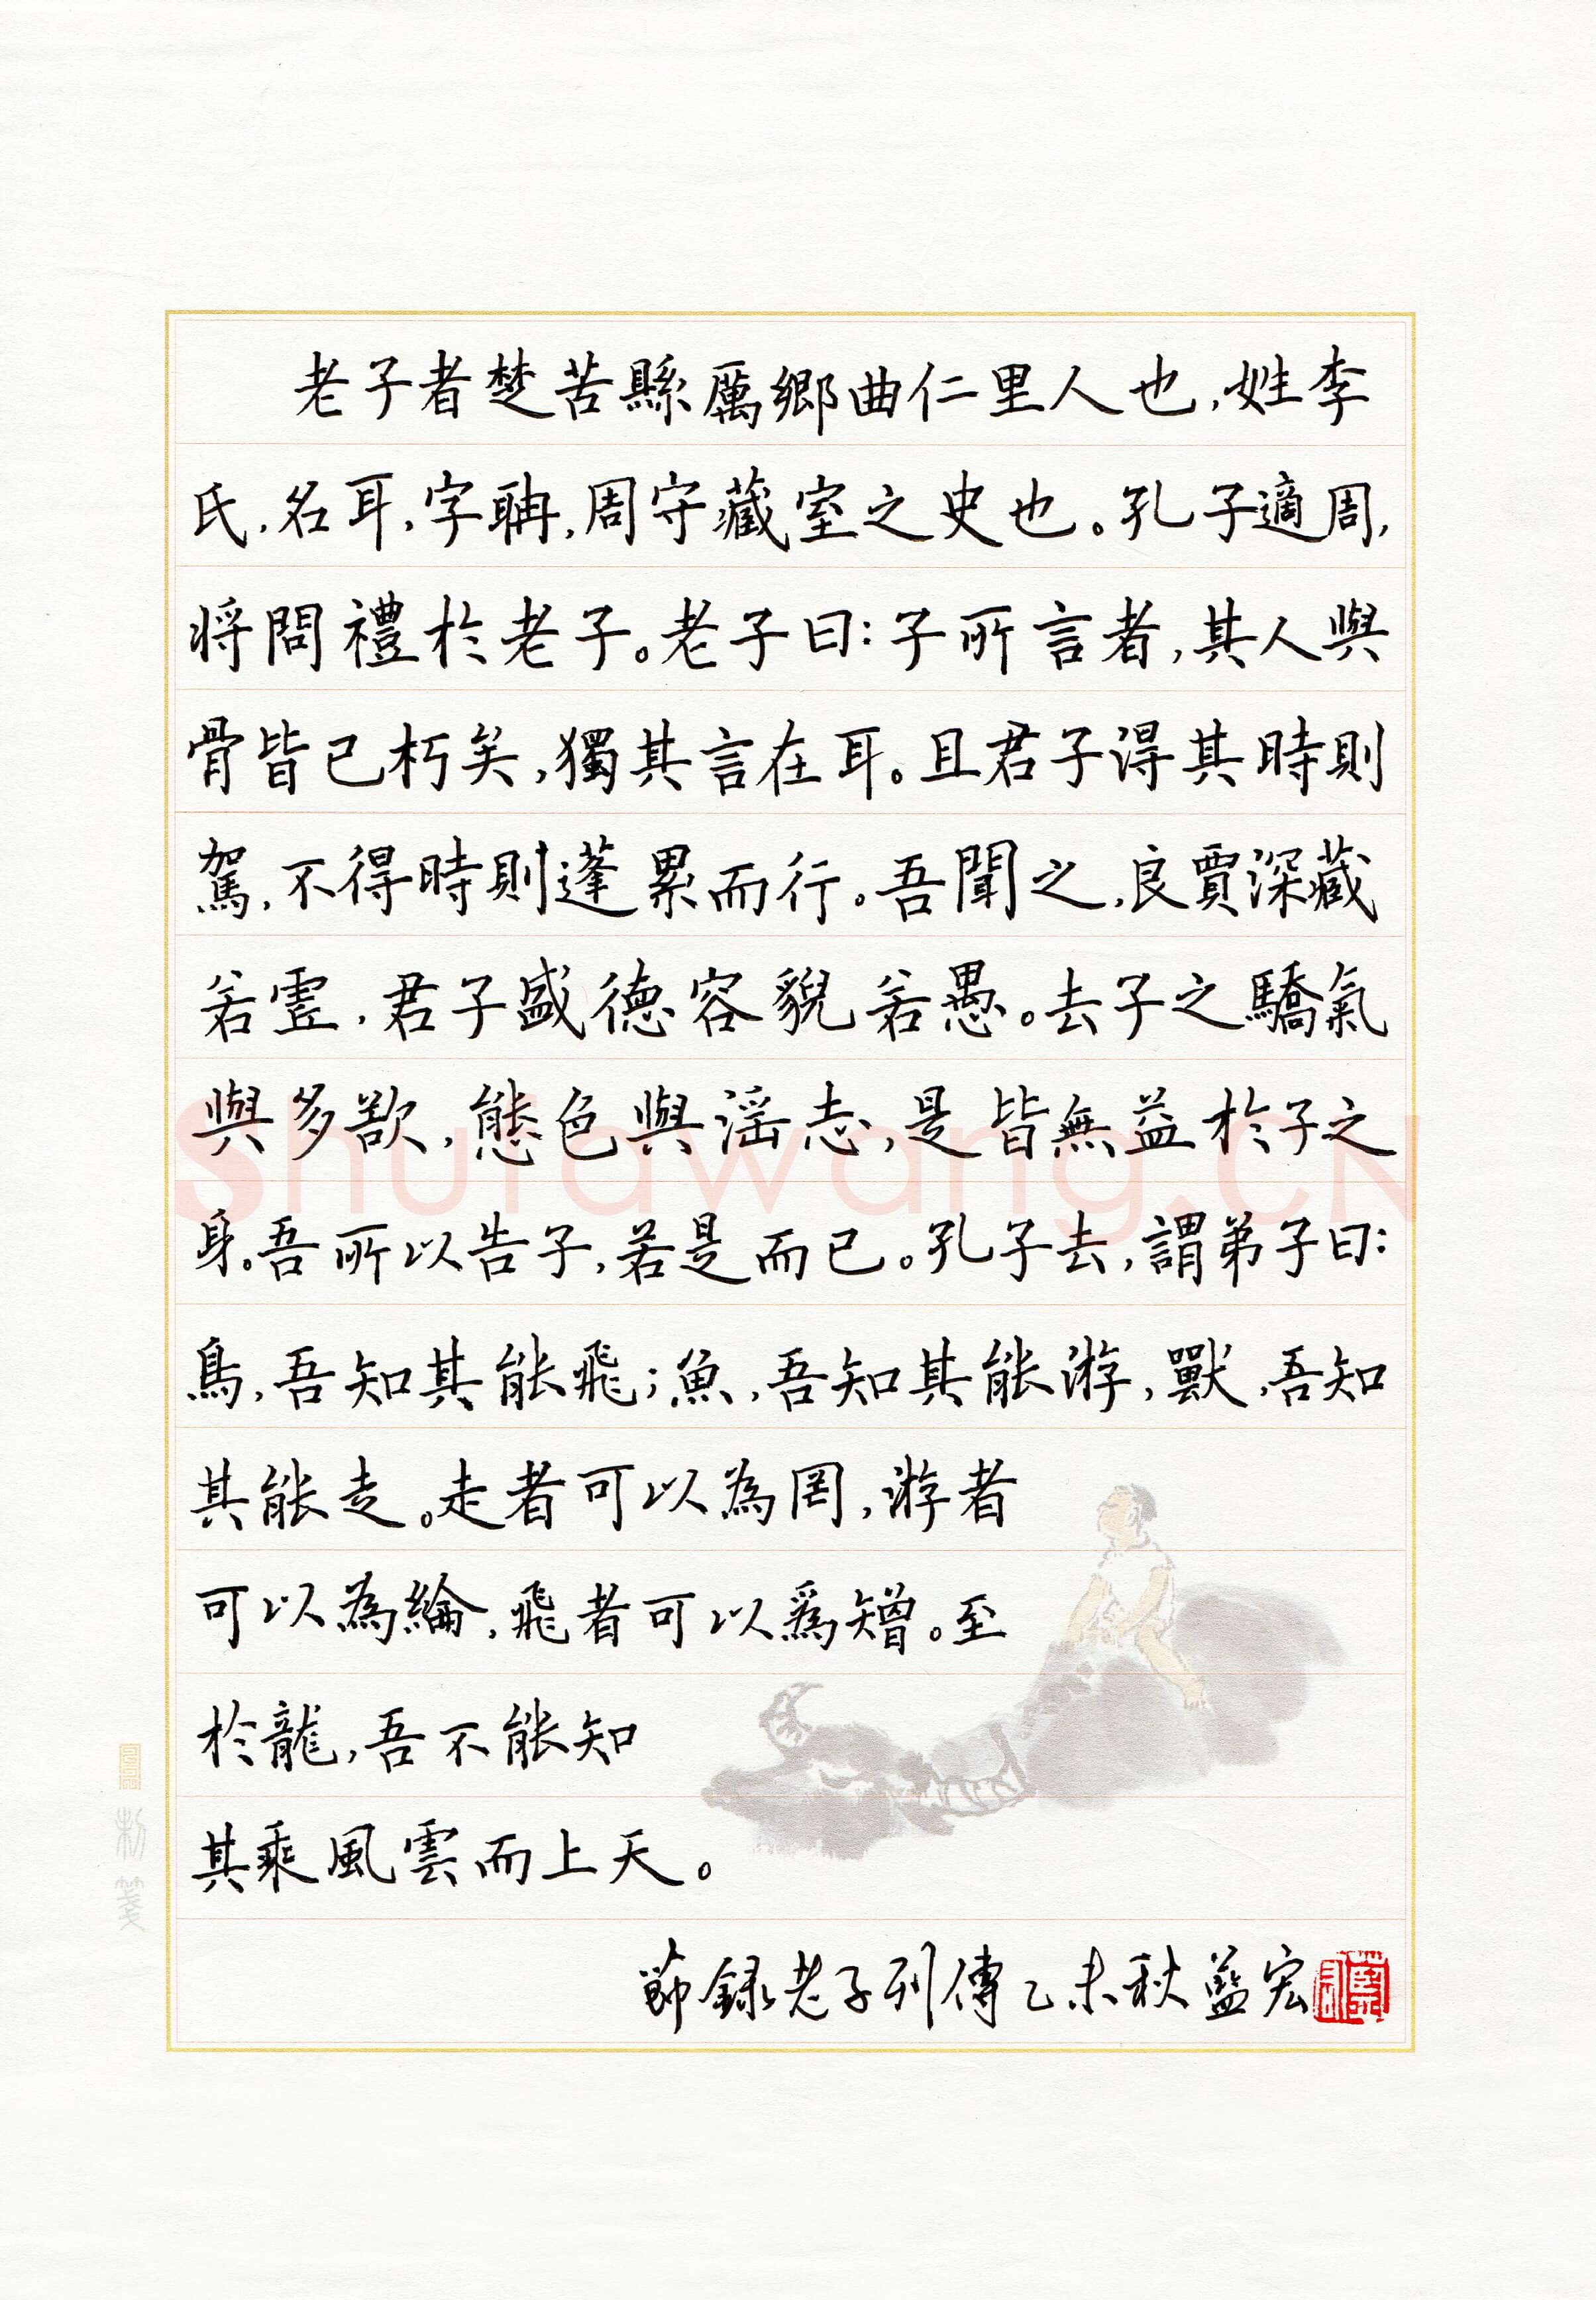 老子者楚苦縣厲鄉曲仁里人也,姓李
氏,名耳,字聃,周守藏室之史也。孔子適周,
將問禮於老子。老子曰:子所言者,其人與
骨皆已朽矣,獨其言在耳。且君子得其時則
駕,不得時則蓬累而行。吾聞之,良賈深藏
若虛,君子盛德容貌若愚。去子之驕氣
與多欲,態色與淫志,是皆無益於子之
身。吾所以告子,若是而已。孔子去,謂弟子曰:
鳥,吾知其能飛;魚,吾知其能游,獸,吾知
其能走。走者可以為罔,游者
可以為綸,飛者可以爲矰。至
於龍,吾不能知
其乘風雲而上天。
節録老子列傳乙未秋藍宏
shufawang.CN
制箋